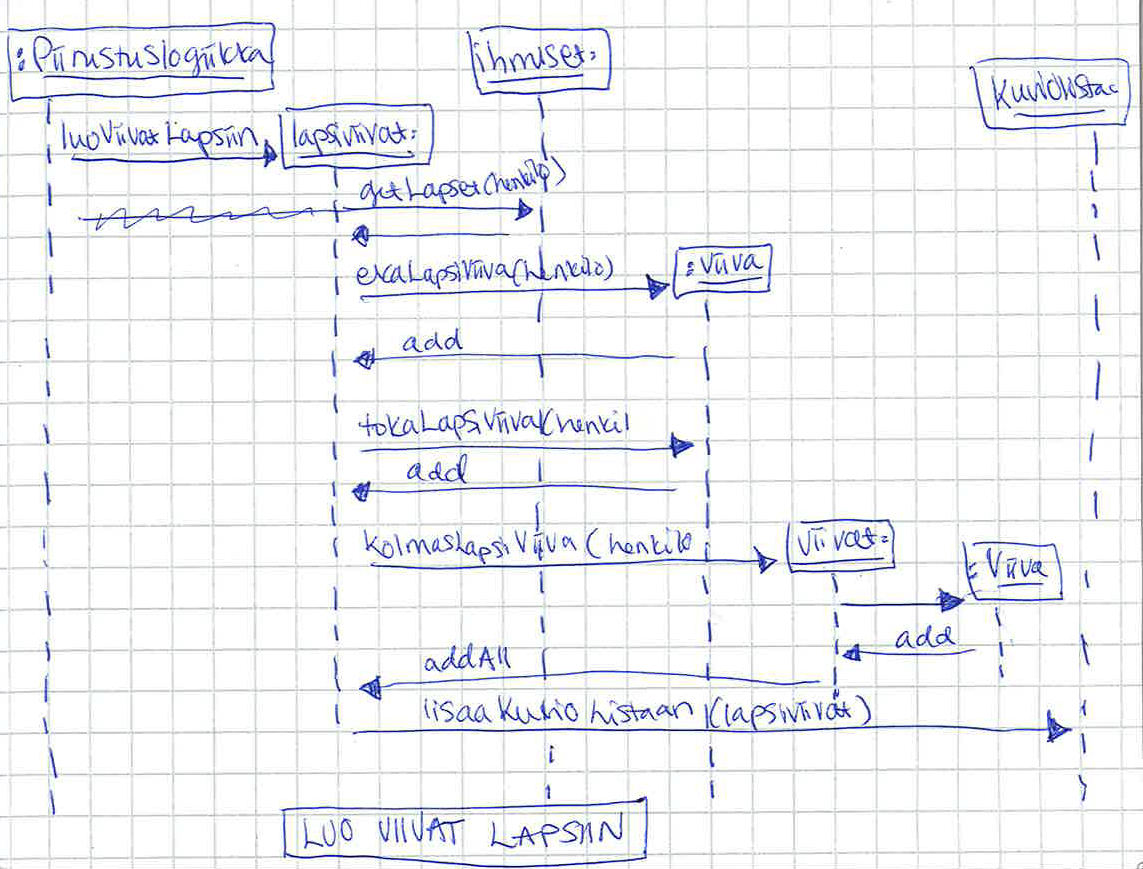 :Piirustuslogiikka
ihmiset:
KuvioLista
luoViivatLapsiin
lapsiviivat:
getLapset(henkilö)
ekaLapsiViiva(henkilö)
:Viiva
add
tokaLapsiViiva(henkil
add
kolmasLapsiViiva(henkilö
viivat:
:Viiva
add
addAll
lisaaKuvioListaan(lapsiviivat)
LUO VIIVAT LAPSIIN